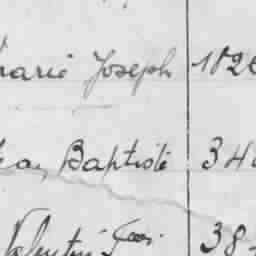 Marie Joseph 102
Jean Baptiste 34
Valentin 38